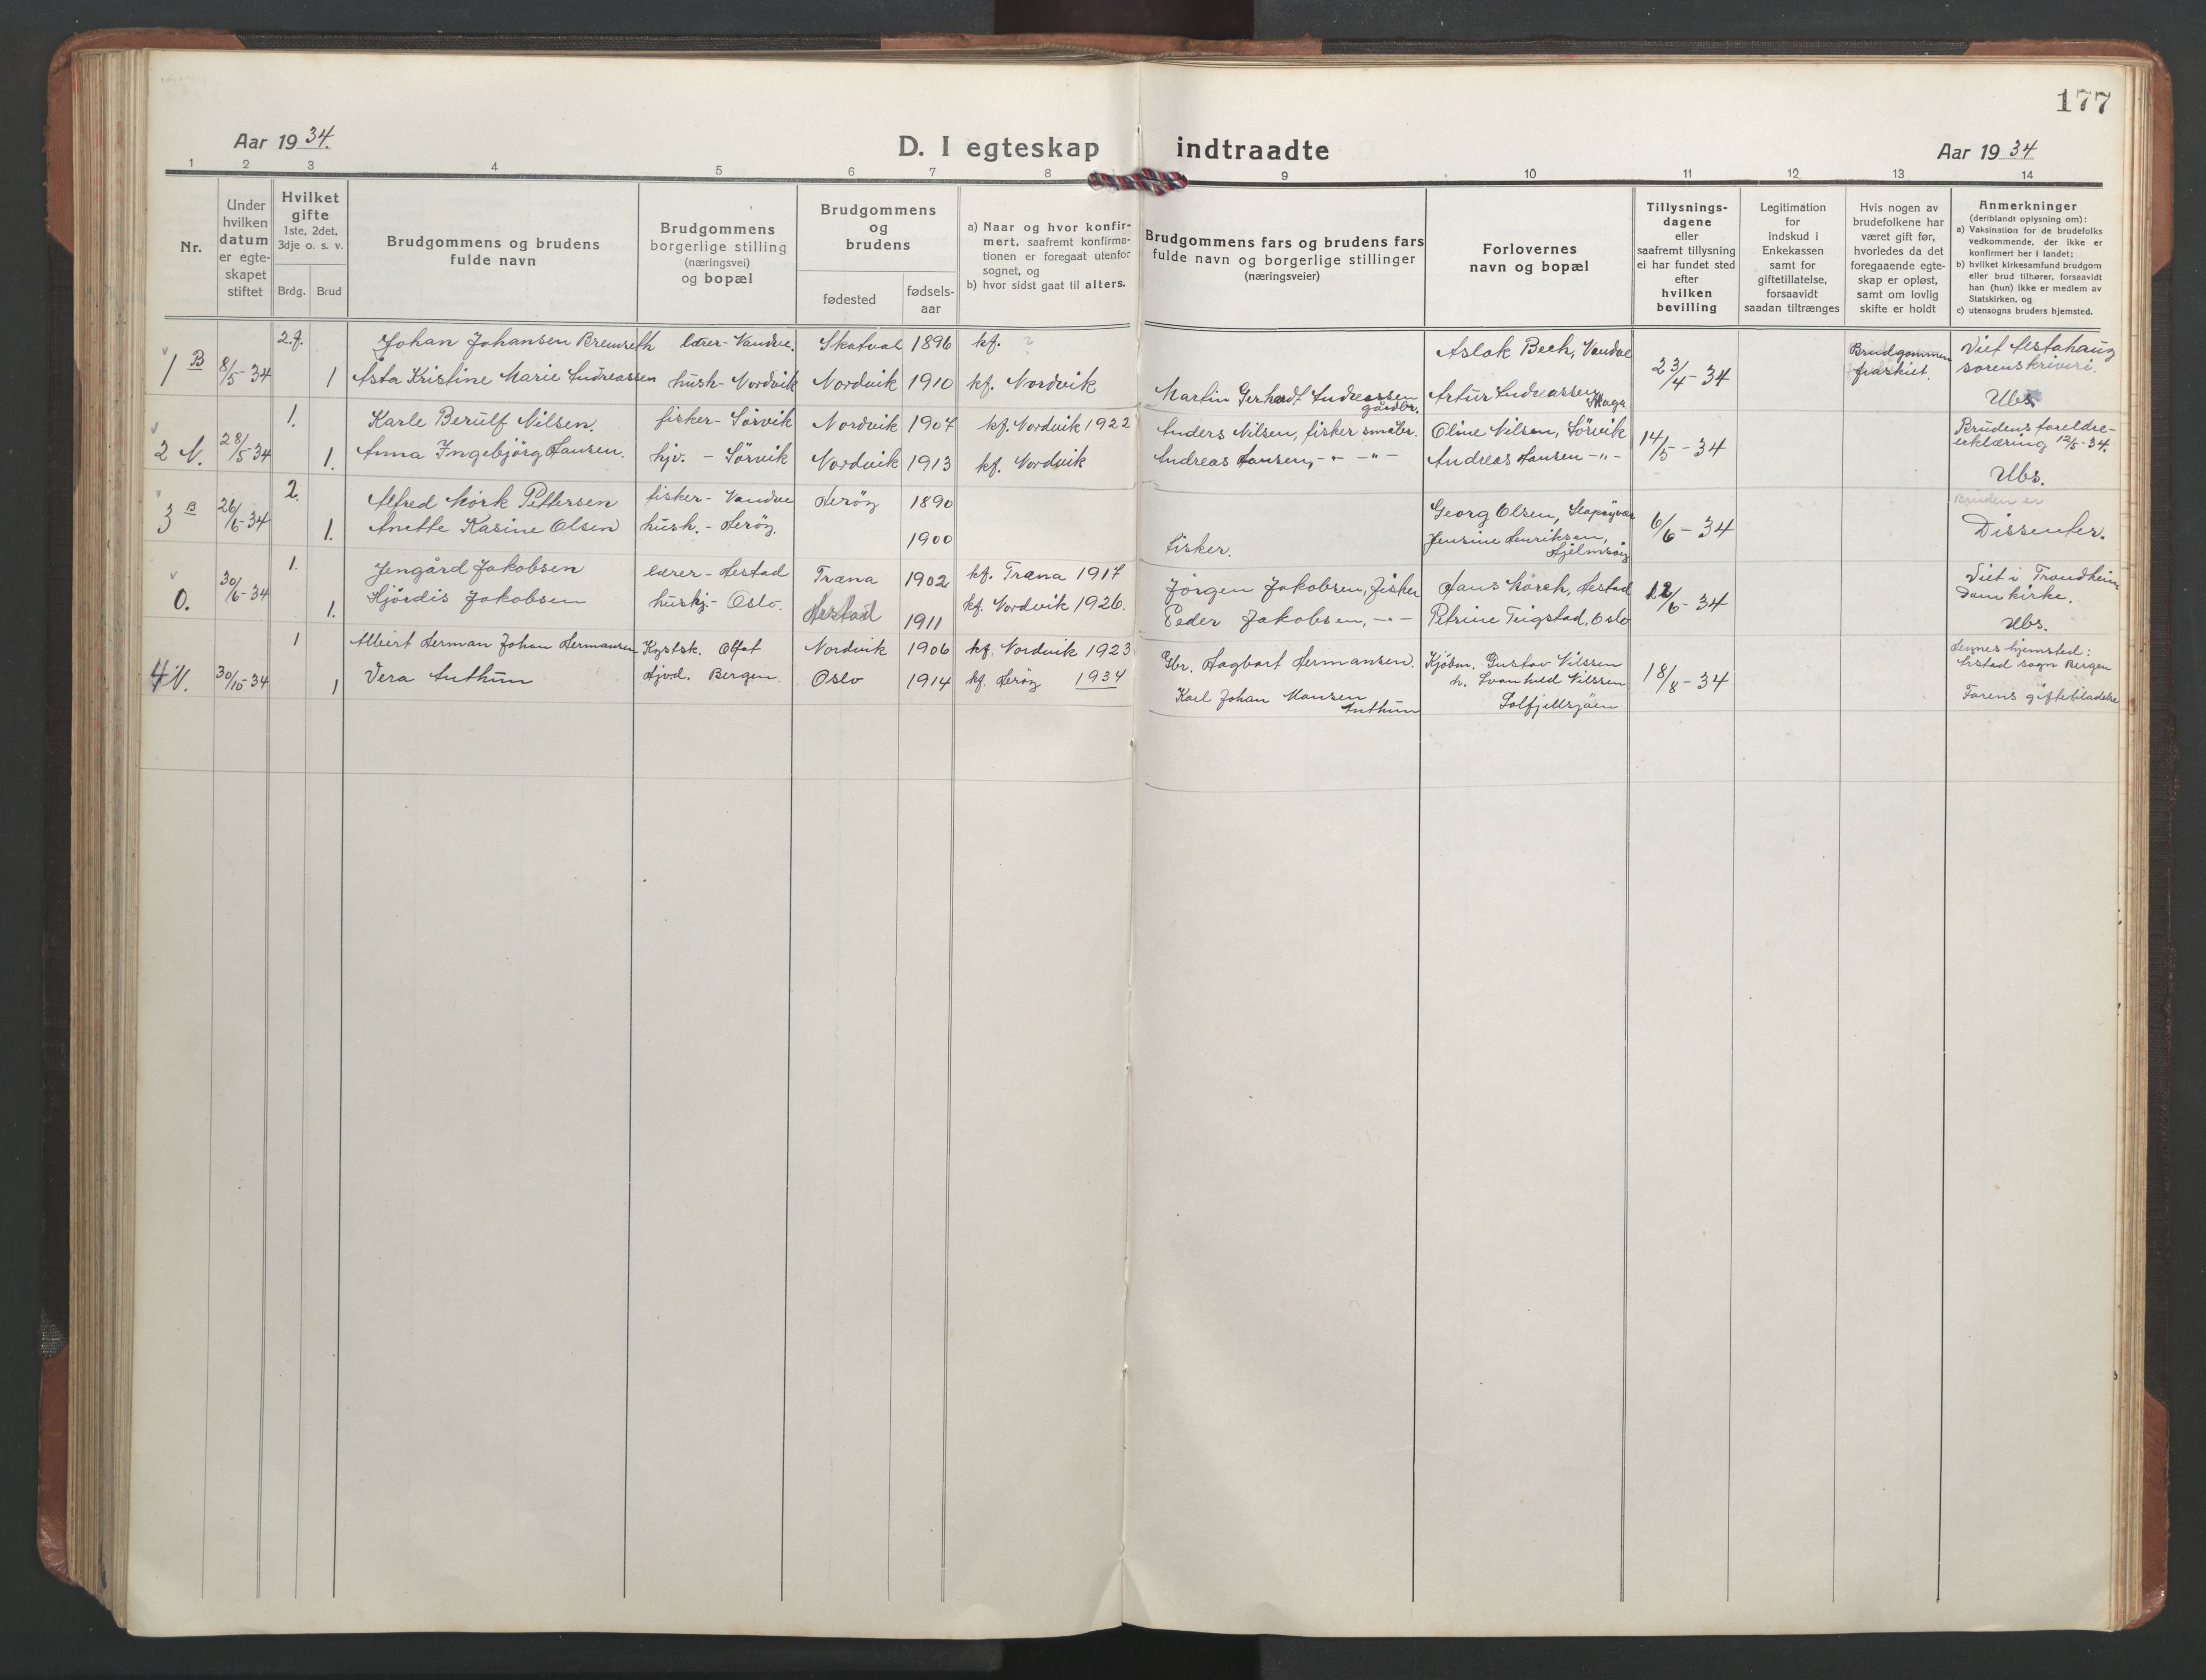 177
Aar 1934.
D. I egteskap indtraadte
Aar 1934
1 2 3 4 5 6 7 8 9 10 11 12 13 14
Nr.
Under hvilken datum er egteskapet stiftet
Hvilket gifte
1ste, 2det, 3dje o. s. v.
Brdg. Brud
Brudgommens og brudens
fulde navn
Brudgommens
borgerlige stilling
(næringsvei)
og bopæl
Brudgommens
og
brudens
fødested
fødselsaar
a) Naar og hvor konfirmert, saafremt konfirmationen er foregaat utenfor sognet, og
b) hvor sidst gaat til alters.
Brudgommens fars og brudens fars
fulde navn og borgerlige stillinger
(næringsveier)
Forlovernes
navn og bopæl
Tillysningsdagene
eller
saafremt tillysning
ei har fundet sted
efter
hvilken
bevilling
Legitimation
for
indskud i
Enkekassen
samt for
giftetillatelse,
forsaavidt
saadan tiltrænges
Hvis nogen av
brudefolkene har
været gift før,
hvorledes da det
foregaaende egteskap er opløst,
samt om lovlig
skifte er holdt
Anmerkninger
(deriblandt oplysning om):
a) Vaksination for de brudefolks vedkommende, der ikke er konfirmert her i landet;
b) hvilket kirkesamfund brudgom eller brud tilhører, forsaavidt han (hun) ikke er medlem av Statskirken, og
c) utensogns bruders hjemsted.
1 B 8/5-34 2.g. Johan Johansen Bremseth lærer - Vandve. Skatval 1896 kf. ? Aslak Bech, Vandve 23/4-34 Brudgommen fraskilt. Viet Alstahaug sorenskriveri.
1 Asta Kristine Marie Andreassen hush - Nordvik Nordvik 1910 kf. Nordvik Martin Gerhardt Andreassen gårdbr. Artur Andreassen Ubs.
2 N. 28/5-34 1. Karle Berulf Nilsen. fisker - Sørvik Nordvik 1907 kf. Nordvik 1922 Anders Nilsen, fisker småbr. Oline Nilsen, Sørvik 14/5-34 Brudens foreldreerklæring 12/5-34.
1. Anna Ingebjørg Hansen. hjv. - Sørvik Nordvik 1913 kf. Nordvik Andreas Hansen, -"- -"- Andreas Hansen -"- Ubs.
3 B 26/6-34 2. Alfred Mørk Pettersen fisker - Vandve Herøy 1890 Georg Olsen, 6/6-34 Bruden er
1. Anette Kasine Olsen hush. - Herøy. 1900 fisker. Jensine Henriksen, Hjelmsøy Dissenter.
0. 30/6-34 1. Jengård Jakobsen lærer - Hestad Træna 1902 kf. Træna 1917 Jørgen Jakobsen, Fisker Hans Mørch, Hestad 12/6-34 Viet i Trondheim Domkirke.
1. Hjørdis Jakobsen hushj.- Oslo. Hestad 1911 kf. Nordvik 1926. Peder Jakobsen, -"- Petrine Teigstad, Oslo Ubs.
4 N. 30/10-34 1 Albert Herman Johan Hermansen Kystsk. Nordvik 1906 kf. Nordvik 1923 Gbr. Hagbart Hermansen. Kjøbm. Gustav Nilssen 18/8-34 Hennes hjemsted: Årstad sogn Bergen
1 Vera Anthun Hjvd. Bergen. Oslo 1914 kf. Herøy 1934 Karl Johan Monsen Anthun h. Svanhild Nilssen Solfjellsjøen Farens giftetilladelse